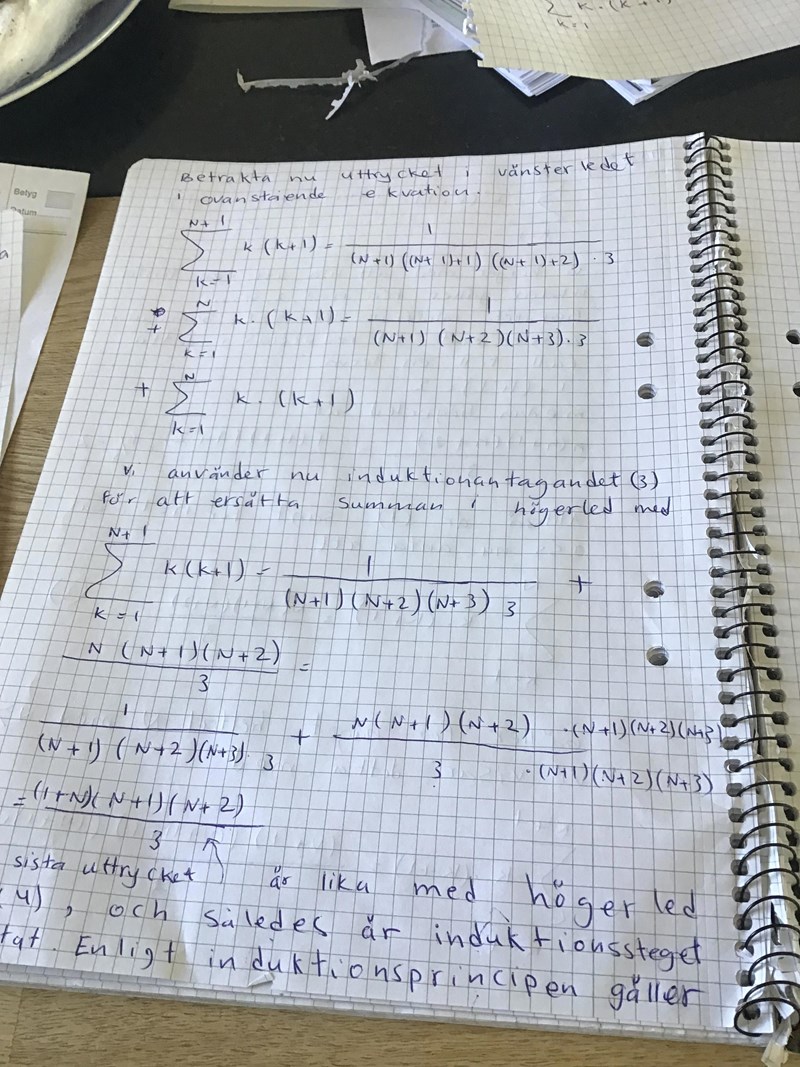 ∑ k·(k+1)
k=1
Betyg
Datum
Betrakta nu uttrycket i vänsterledet
i ovanstående ekvation.
N+1
∑ k(k+1) = 1 / (N+1)((N+1)+1)((N+1)+2)·3
k=1
N
+ ∑ k·(k+1) = 1 / (N+1)(N+2)(N+3)·3
k=1
N
+ ∑ k·(k+1)
k=1
Vi använder nu induktionantagandet (3)
för att ersätta summan i högerled med
N+1
∑ k(k+1) = 1 / (N+1)(N+2)(N+3) 3 +
k=1
N(N+1)(N+2) / 3 =
1 / (N+1)(N+2)(N+3)·3 + N(N+1)(N+2) / 3 ·(N+1)(N+2)(N+3) / ·(N+1)(N+2)(N+3)
= (1+N)(N+1)(N+2) / 3
sista uttrycket är lika med höger led
(4), och således är induktionssteget
Enligt induktionsprincipen gäller